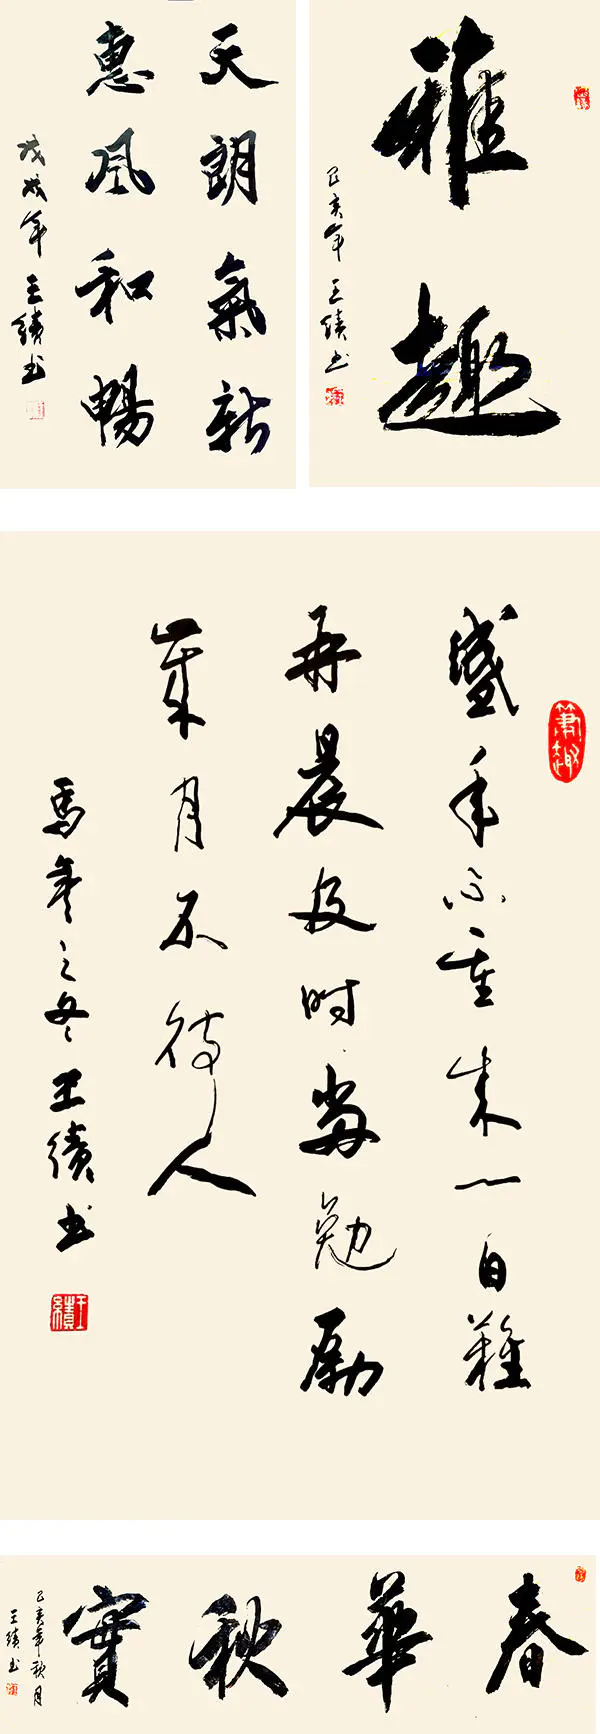 天朗氣新
惠風和暢
戊戌年 王績书
雅趣
己亥年 王績书
盛年不重来一日難
再晨及时当勉励
岁月不待人
馬年之冬王績书
王績
春華秋實
己亥年秋月
王績书